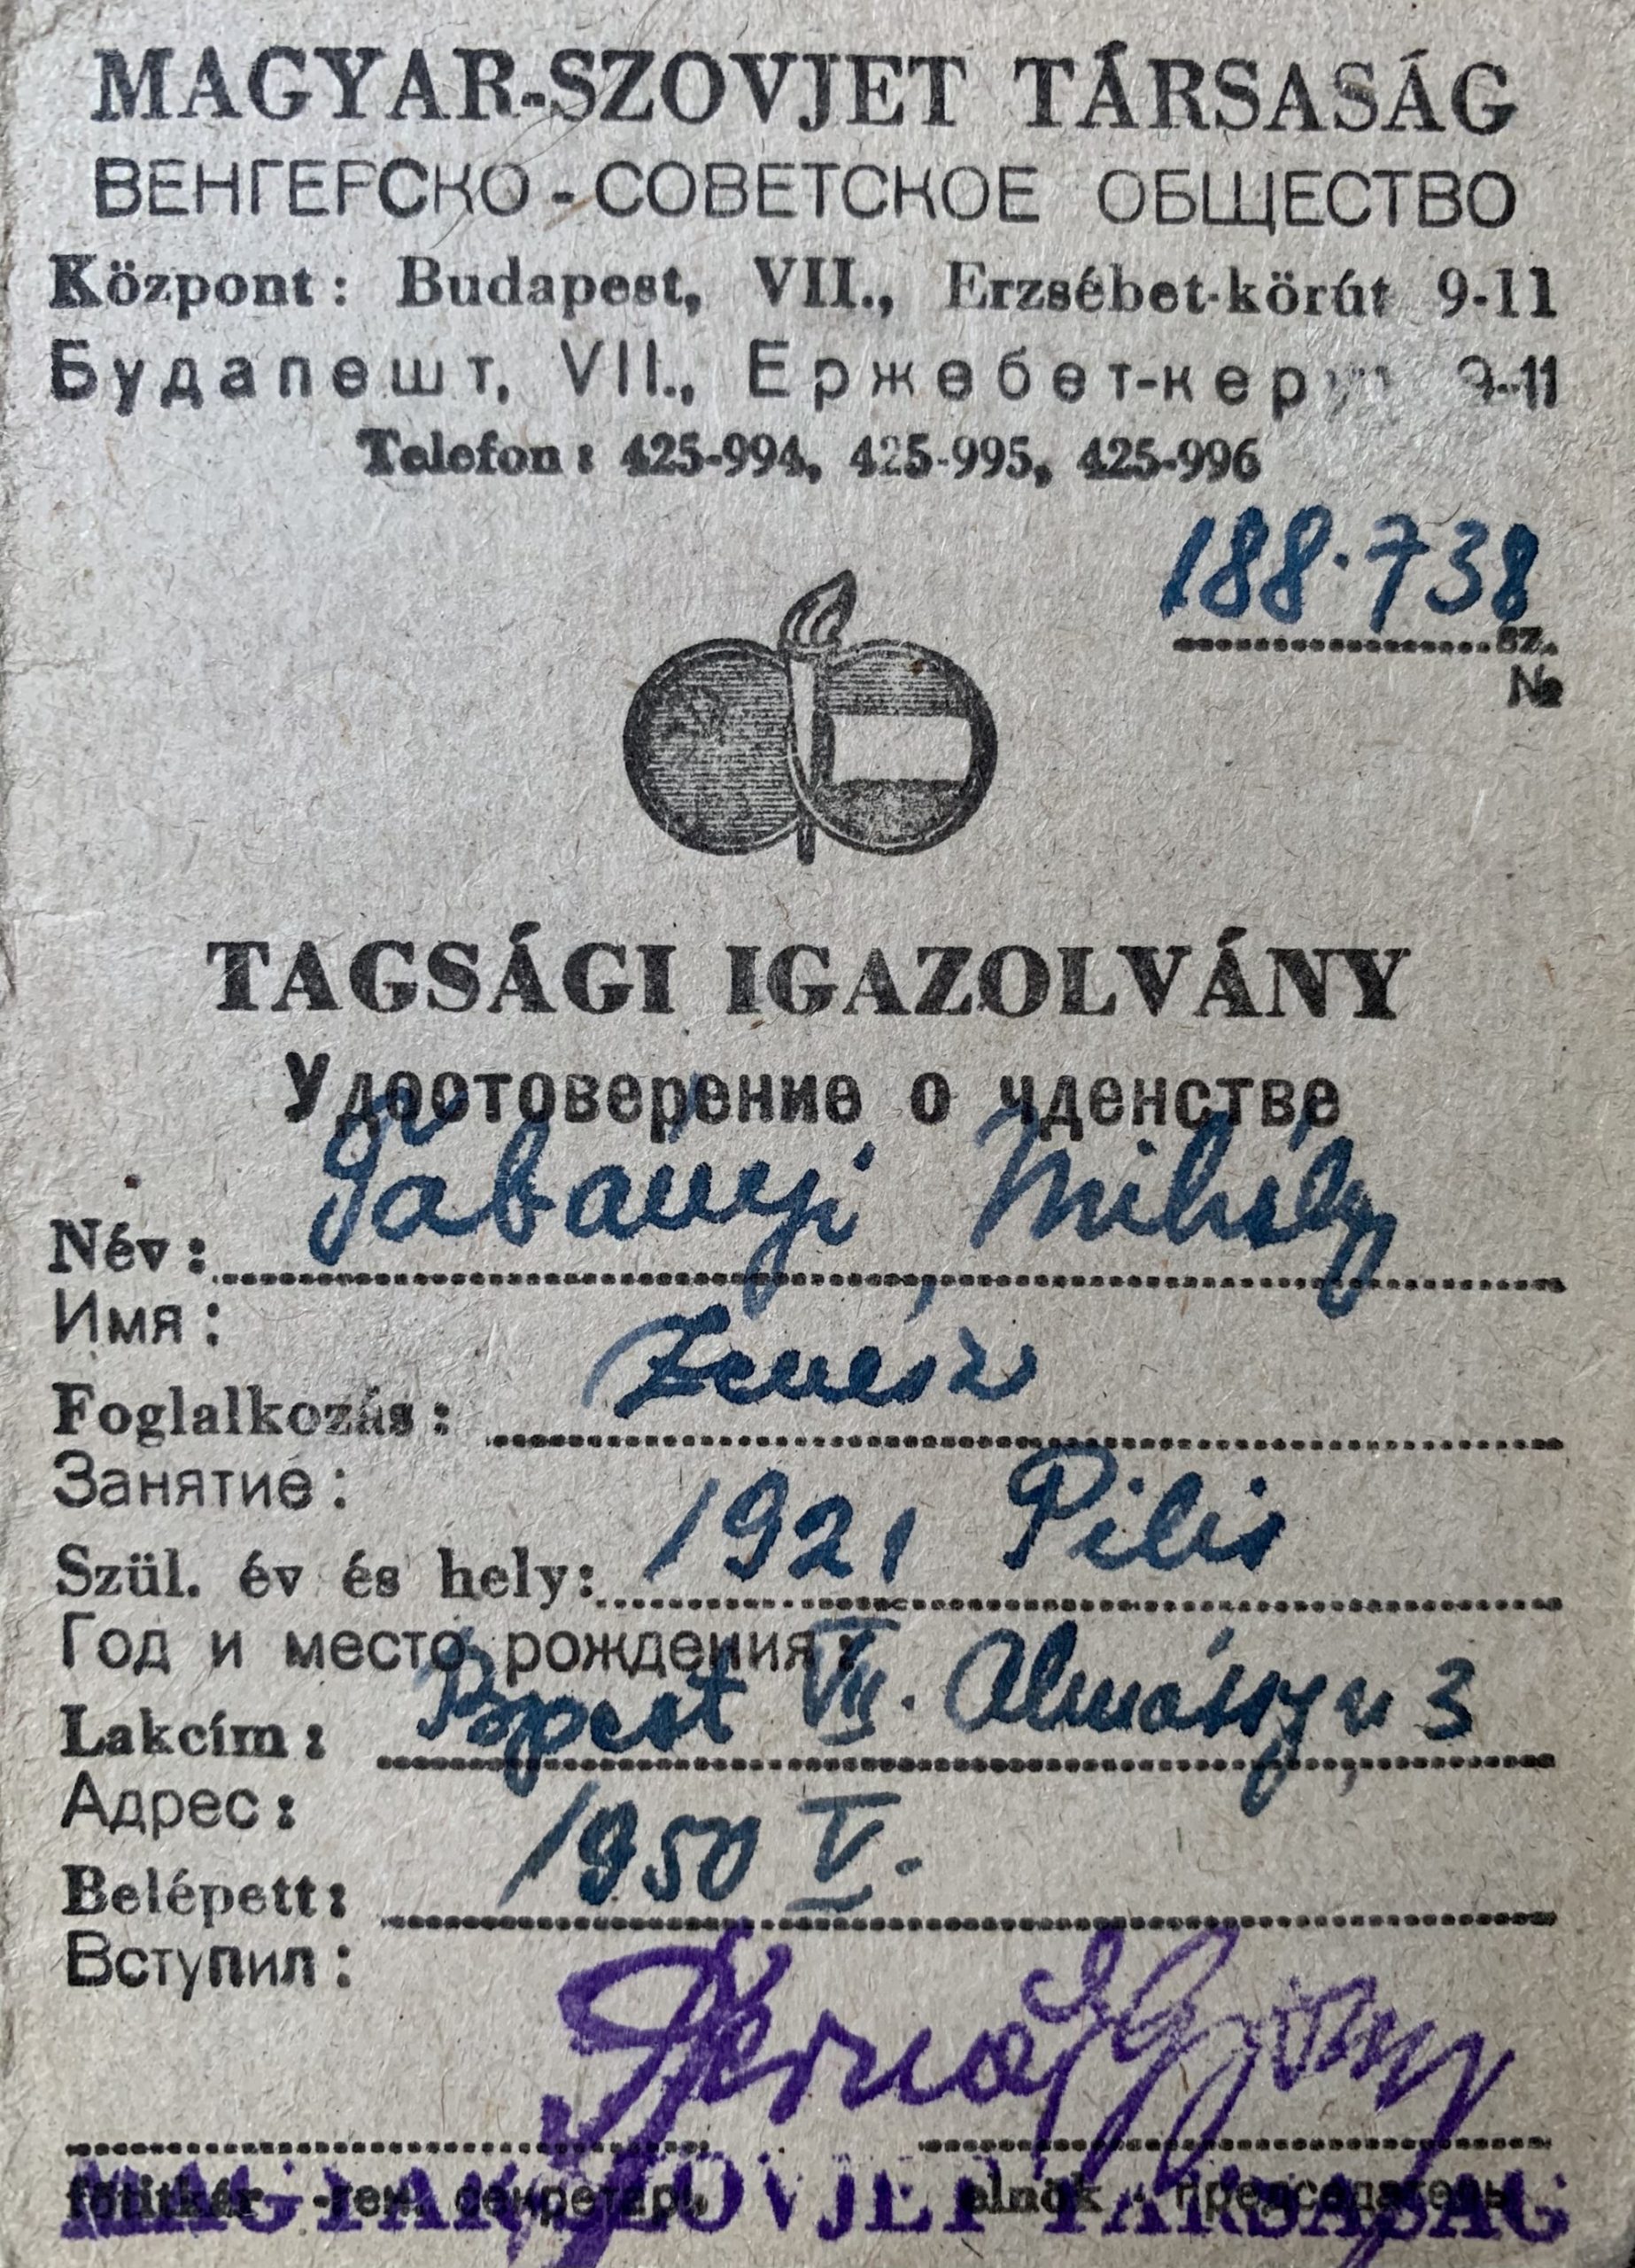 MAGYAR-SZOVJET TÁRSASÁG
ВЕНГЕРСКО-СОВЕТСКОЕ ОБЩЕСТВО
Központ: Budapest, VII., Erzsébet-körút 9-11
Будапешт, VII., Ержебет-керут 9-11
Telefon: 425-994, 425-995, 425-996
188.738
sz.
№
TAGSÁGI IGAZOLVÁNY
Удостоверение о чденстве
Név: Tabányi, Mihály
Имя:
Foglalkozás: Zenész
Занятие:
Szül. év és hely: 1921 Pilis
Год и место рождения:
Lakcím: Bpest VII. Almássy u 3
Адрес:
Belépett: 1950 V.
Вступил:
főtitkár -ген. секретарь elnök - председатель
MAGYAR-SZOVJET TÁRSASÁG